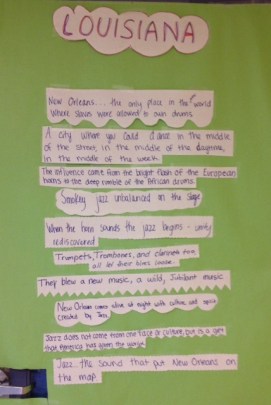 LOUISIANA
New Orleans... the only place in the new world
where slaves were allowed to own drums.
A city where you could dance in the middle
of the street, in the middle of the daytime,
in the middle of the week
The influence came from the bright flash of the European
horns to the deep rumble of the African drums.
Smokey jazz unbalanced on the stage
When the horn sounds the jazz begins - unity
rediscovered
Trumpets, Trombones, and clarinets
all let their blues loose.
They blew a new music, a wild, jubilant music
New Orleans comes alive at night with culture and spice
created by Jazz.
Jazz does not come from one race or culture, but is a gift
that America has given the world.
Jazz. the sound that put New Orleans on
the map.